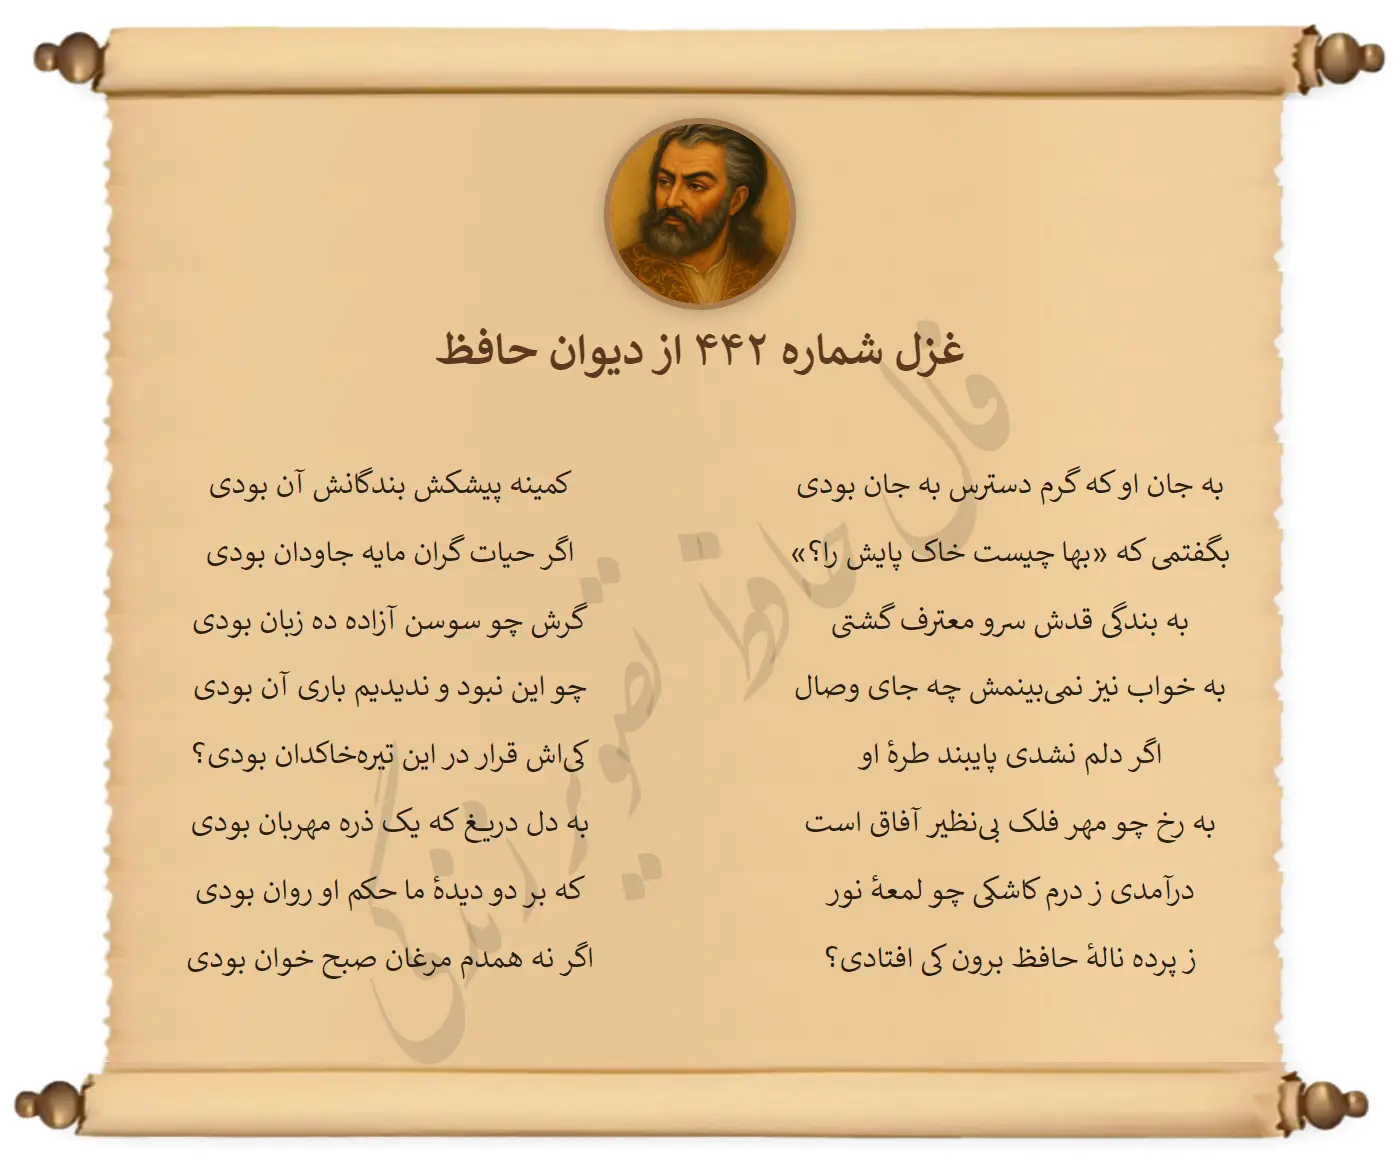 غزل شماره ۴۴۲ از دیوان حافظ
به جان او که گرم دسترس به جان بودی
کمینه پیشکش بندگانش آن بودی
بگفتمی که «بها چیست خاک پایش را؟»
اگر حیات گران مایه جاودان بودی
به بندگی قدش سرو معترف گشتی
گرش چو سوسن آزاده ده زبان بودی
به خواب نیز نمی‌بینمش چه جای وصال
چو این نبود و ندیدیم باری آن بودی
اگر دلم نشدی پایبند طرهٔ او
کی‌اش قرار در این تیره‌خاکدان بودی؟
به رخ چو مهر فلک بی‌نظیر آفاق است
به دل دریغ که یک ذره مهربان بودی
درآمدی ز درم کاشکی چو لمعهٔ نور
که بر دو دیدهٔ ما حکم او روان بودی
ز پرده نالهٔ حافظ برون کی افتادی؟
اگر نه همدم مرغان صبح خوان بودی
فال حافظ تصویر زندگی